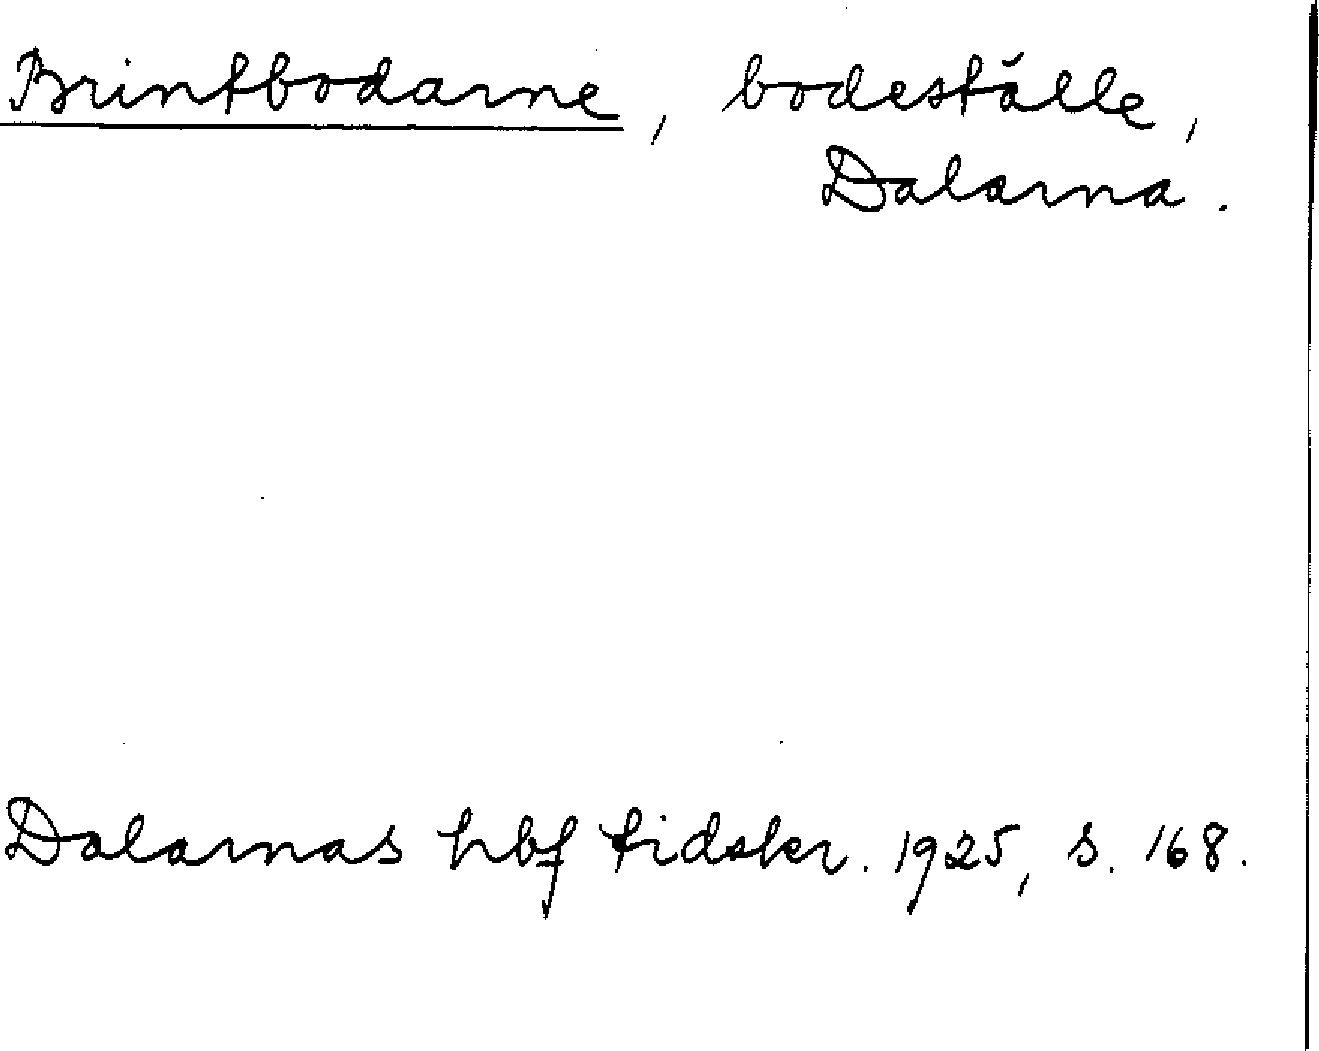 Brintbodarne, bodeställe,
Dalarna.
Dalarnas hbf tidskr. 1925, s. 168.